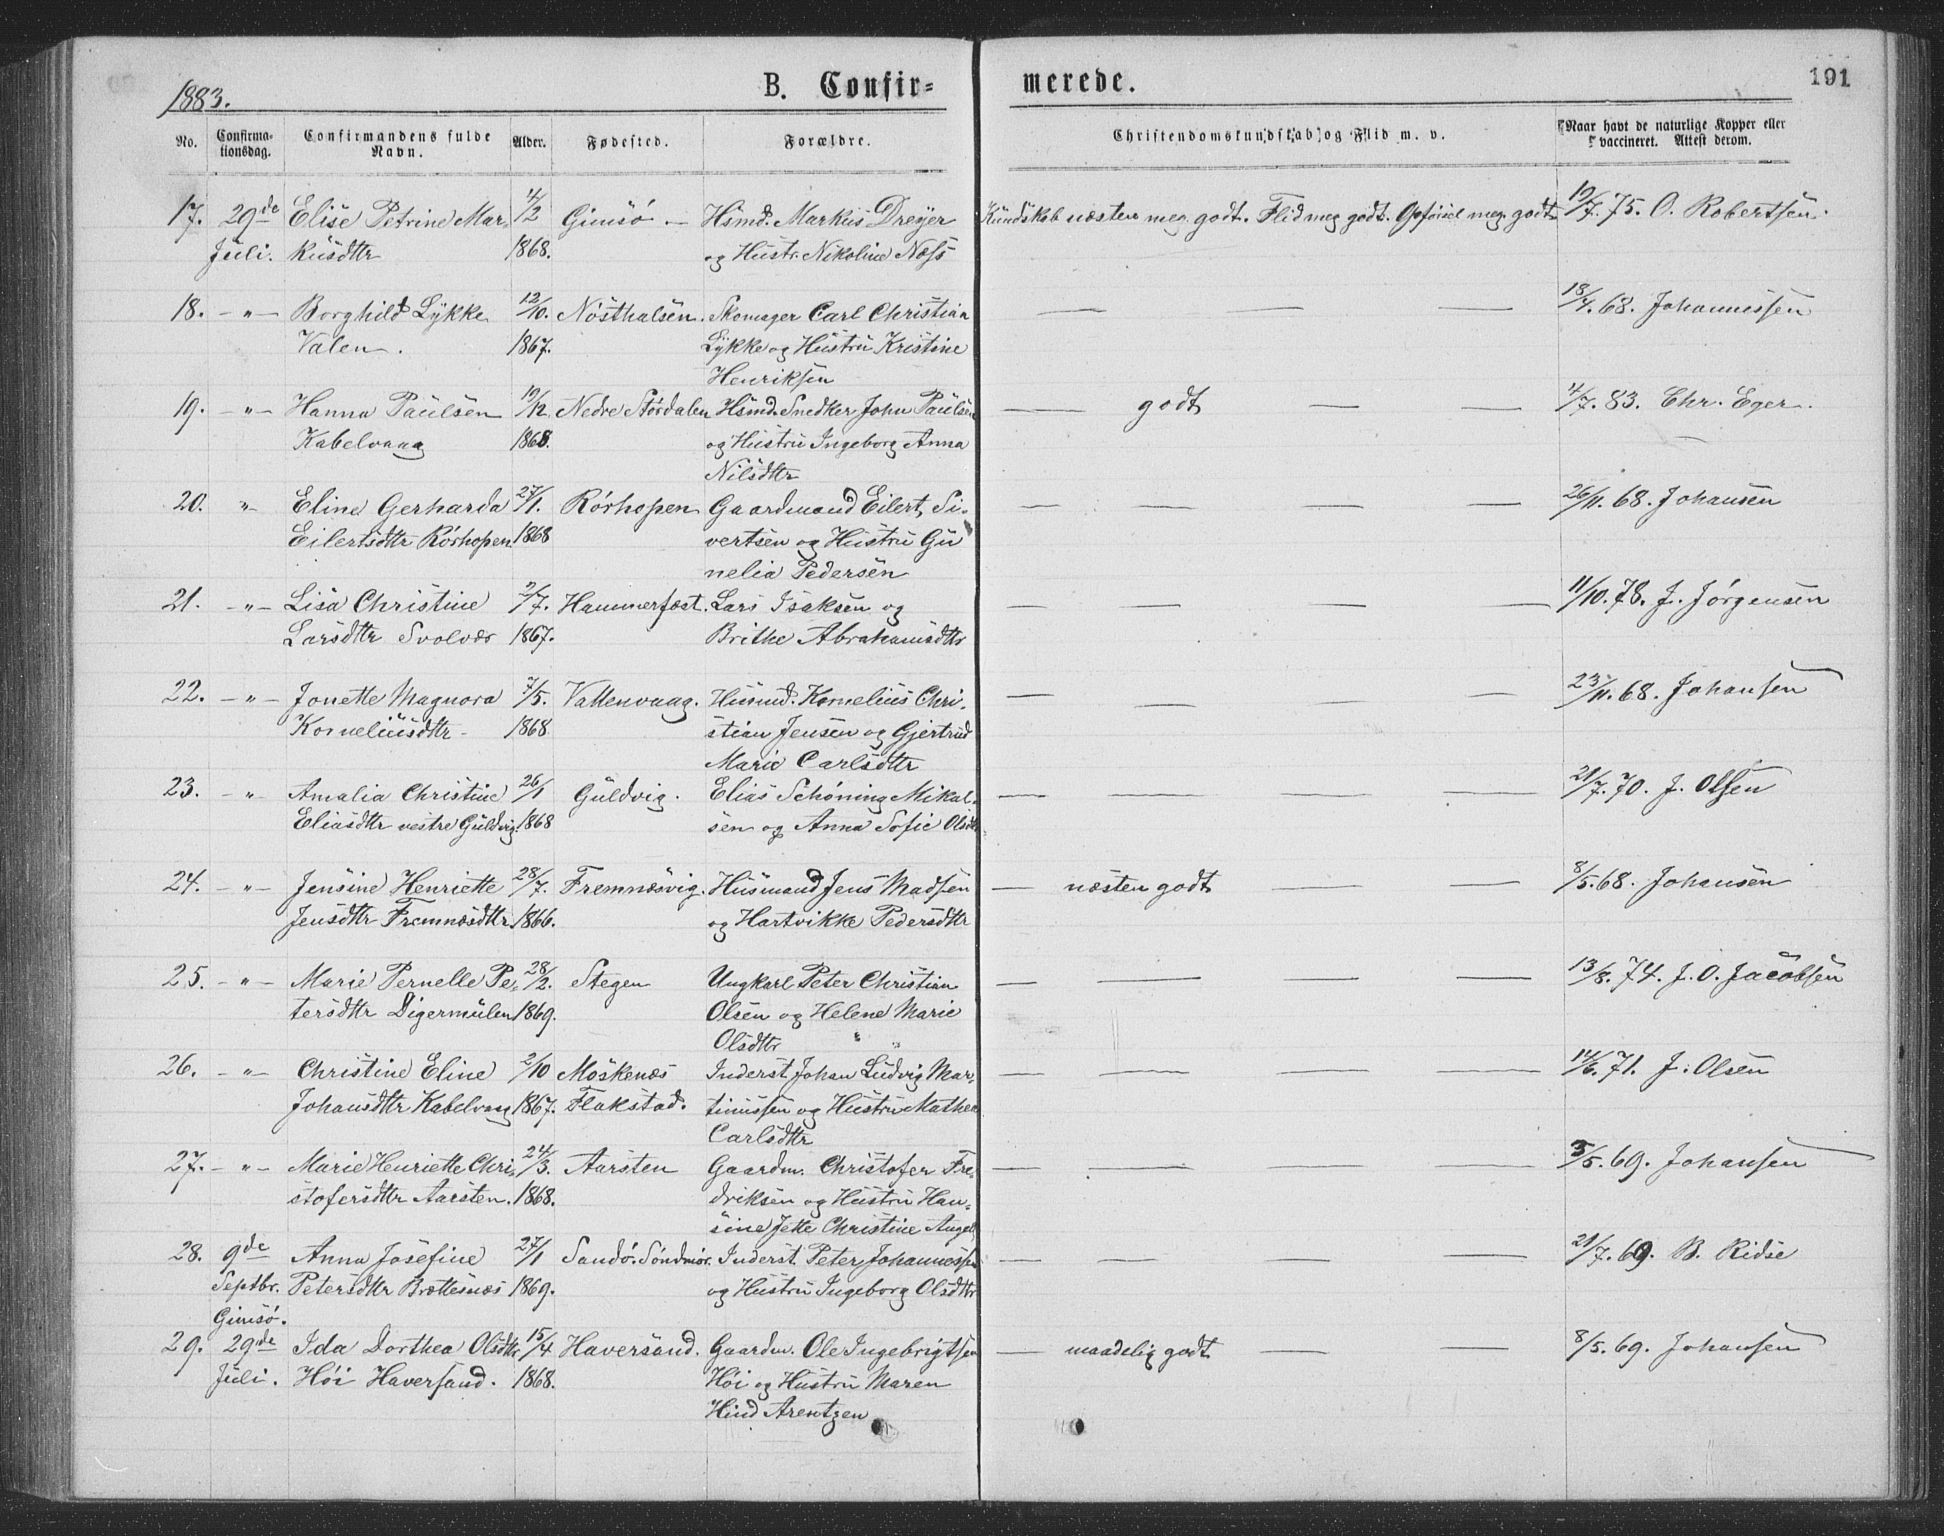 1883. B. Confir= merede. 191
No. Confirma-tionsdag. Confirmandens fulde Navn. Alder. Fødested. Forældre. Christendomskundskab og Flid m. v. Naar havt de naturlige Kopper eller vaccineret. Attest derom.
17. 29de Elise Petrine Mar- 4/2 Gimsö — Hsmd. Markus Dreyer Kundskab næsten meg. godt. Flid meg godt. Opførsel meg. godt 19/7. 75. O. Robertsen.
Juli. kusdttr 1868. og Hustr. Nikoline Næss
18. —"— Borghild Lykke 12/10. Nösthalsen. Skomager Carl Christian — — — 18/4. 68. Johannessen
Valen. 1867. Lykke og Hustru Kristine
Henriksen
19. —"— Hanna Paulsen 19/12 Nedre Stördalen Hsmd. Snedker John Paulsen — godt — — 4/7. 83. Chr. Eger.
Kabelvaag 1868. og Hustru Ingeborg Anna
Nilsdttr
20. " Eline Gerharda 27/1. Rørhopen Gaardmand Eilert Si- — — — — 26/11. 68. Johansen
Eilertsdttr Rørhopen 1868 vertsen og Hustru Gu
nelia Pedersen
21. —"— Lisa Christine 2/7. Hammerfæst. Lars Isaksen og — — — — 11/10. 78. J. Jørgensen
Larsdttr Svolvær 1867. Brithe Abrahamsdttr
22. —"— Jonette Magnora 7/5. Vattenvaag. Husmd. Kornelius Chri- — — — — 23/11. 68. Johansen
Korneliusdttr 1868 stian Jensen og Gjertrud
Marie Carlsdttr
23. —"— Amalia Christine 26/1 Guldvig. Elias Schöning Mikal- — — — — 21/7. 70. J. Olsen
Eliasdttr vestre Guldvig. 1868 sen og Anna Sofie Olsdttr
24. —"— Jensine Henriette 28/7. Fremnæsvig. Husmand Jens Madsen — næsten godt — — 8/5. 68. Johansen
Jensdttr Fremnæsdttr. 1866. og Hartvikke Pedersdttr
25. —"— Marie Pernelle Pe- 28/2. Stegen Ungkarl Peter Christian — — — — 13/8. 74. J. O. Jacobsen
tersdttr Digermulen 1869. Olsen og Helene Marie
Olsdttr " "
26. —"— Christine Eline 2/10 Moskenæs Inderst Johan Ludvig Mar- — — — — 14/6. 71. J. Olsen
Johansdttr Kabelvaag 1867. Flakstad. tinussen og Hustru Mathea
Carlsdttr
27. —"— Marie Henriette Chri- 24/3. Aarsten Gaardm. Christofer Fre- — — — — 3/5. 69. Johansen
stofersdttr Aarsten. 1868. driksen og Hustru Han-
sine Jette Christine Angel
28. 9de Anna Josefine 27/1 Sandö. Söndmör. Inderst Peter Johannessen — — — — 21/7. 69. B. Ridse
Septbr. Petersdttr Brettesnæs 1869. og Hustru Ingeborg Olsdttr
Gimsö.
29. 29de Ida Dorthea Olsdttr 15/4 Haversand. Gaardm. Ole Ingebrigtsen — maadelig godt — — 8/5. 69. Johansen
Juli. Höi Haversand. 1868. Höi og Hustru Maren
Hind Arentzen